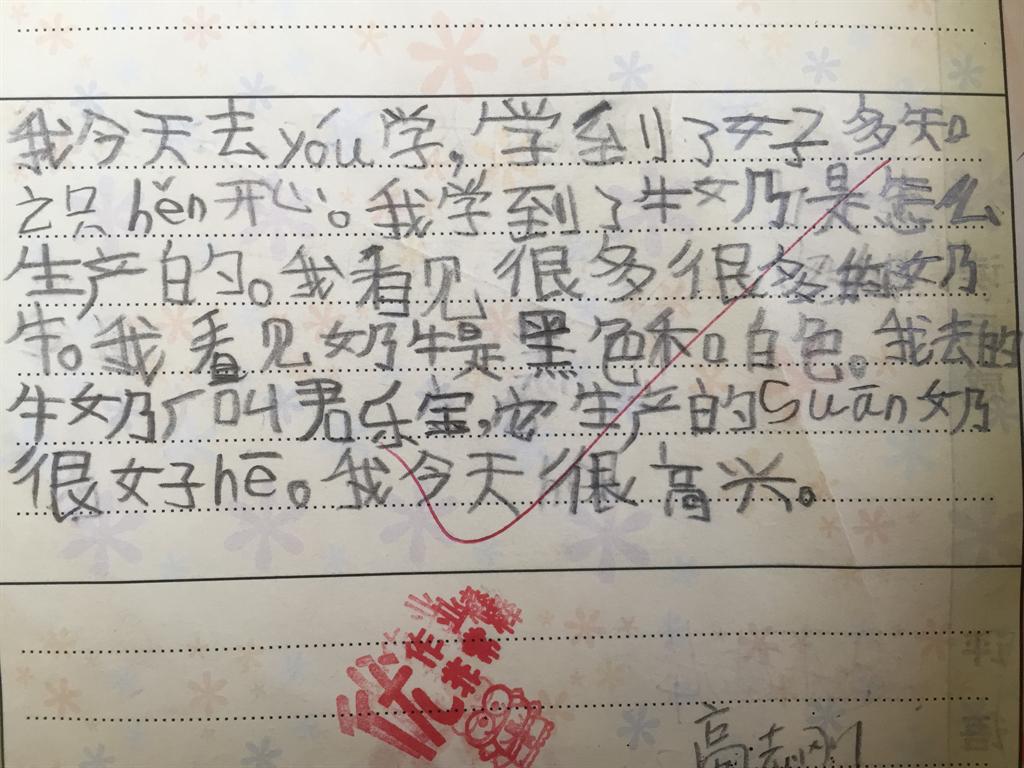 我今天去yóu学,学到了好多知
之只hěn开心。我学到了牛奶是怎么
生产的。我看见很多很多的奶
牛。我看见奶牛是黑色和白色。我去的
牛奶厂叫君乐宝,它生产的Suān奶
很好hē。我今天很高兴。
优
作业